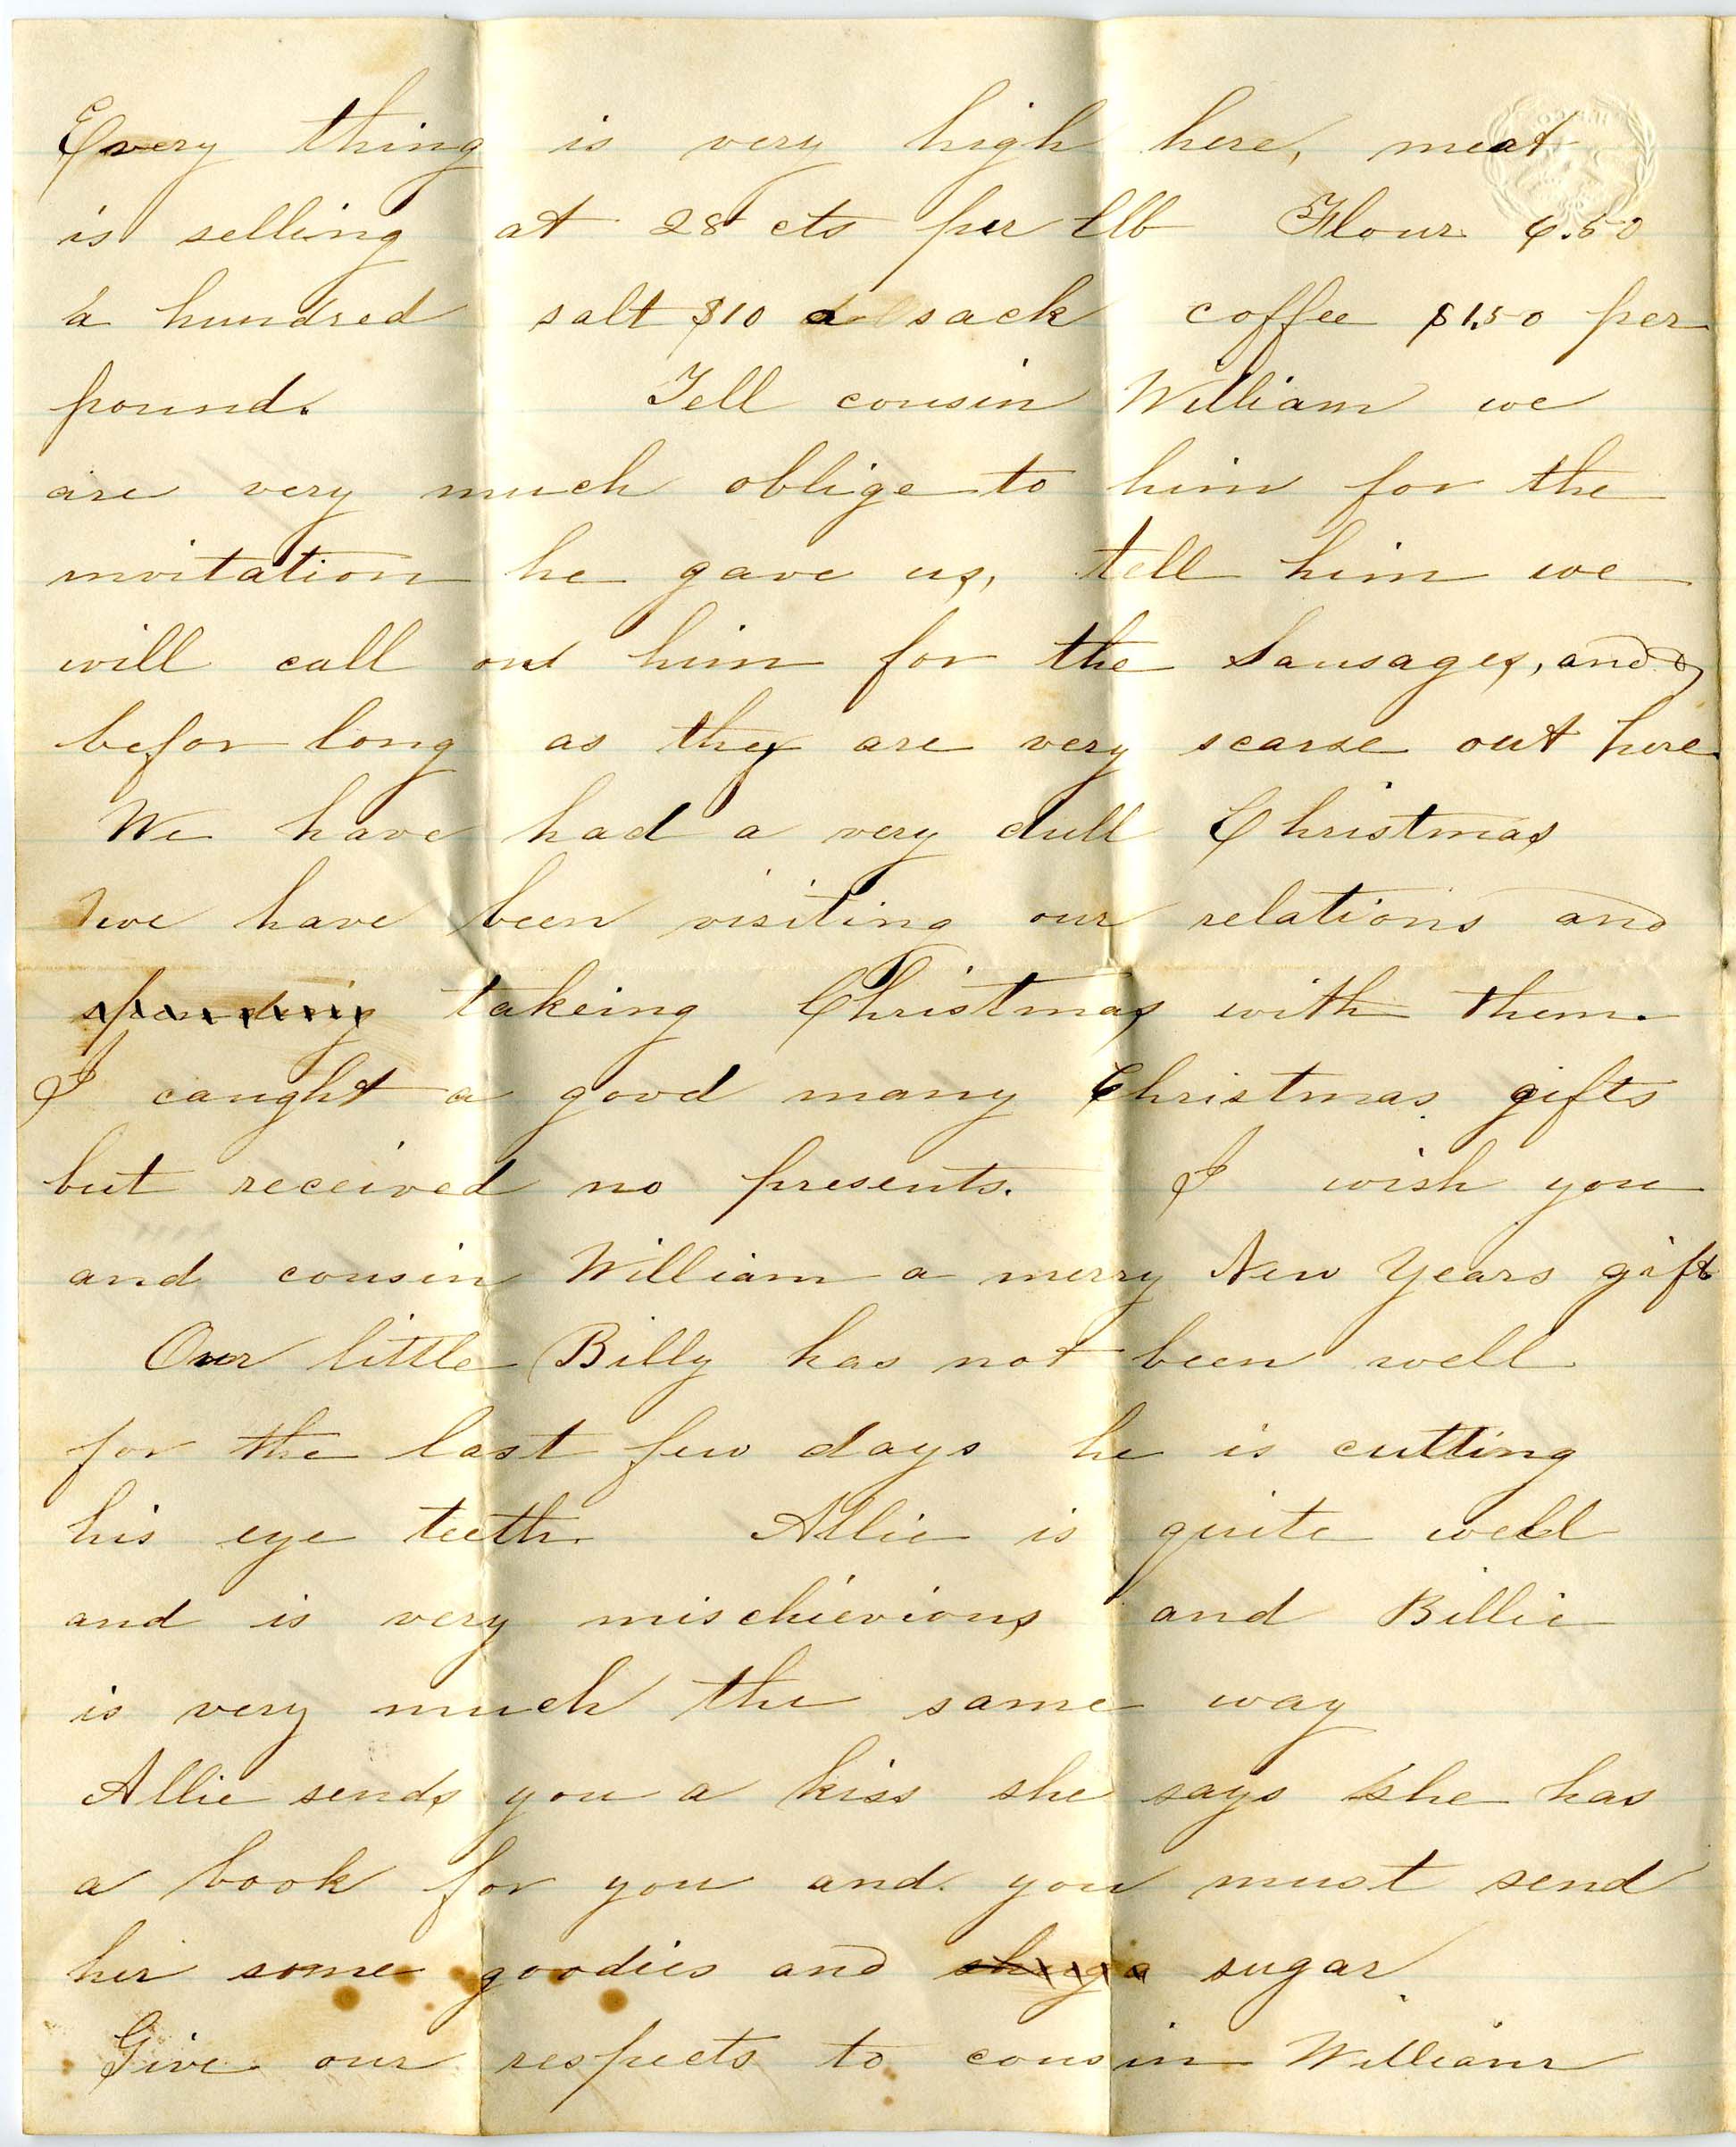 Every thing is very high here, meat
is selling at 28 cts per lb Flour 6.50
a hundred salt $10 a sack coffee $1.50 per
pound. Tell cousin William we
are very much oblige to him for the
invitation he gave us, tell him we
will call on him for the Sausages, and
befor long as they are very scarse out here
We have had a very dull Christmas
we have been visiting our relations and
spending takeing Christmas with them.
I caught a good many Christmas gifts
but received no presents. I wish you
and cousin William a merry New Years gift
Our little Billy has not been well
for the last few days he is cutting
his eye teeth. Allie is quite well
and is very mischievious and Billie
is very much the same way
Allie sends you a kiss she says she has
a book for you and you must send
her some goodies and sugar
Give our respects to cousin William